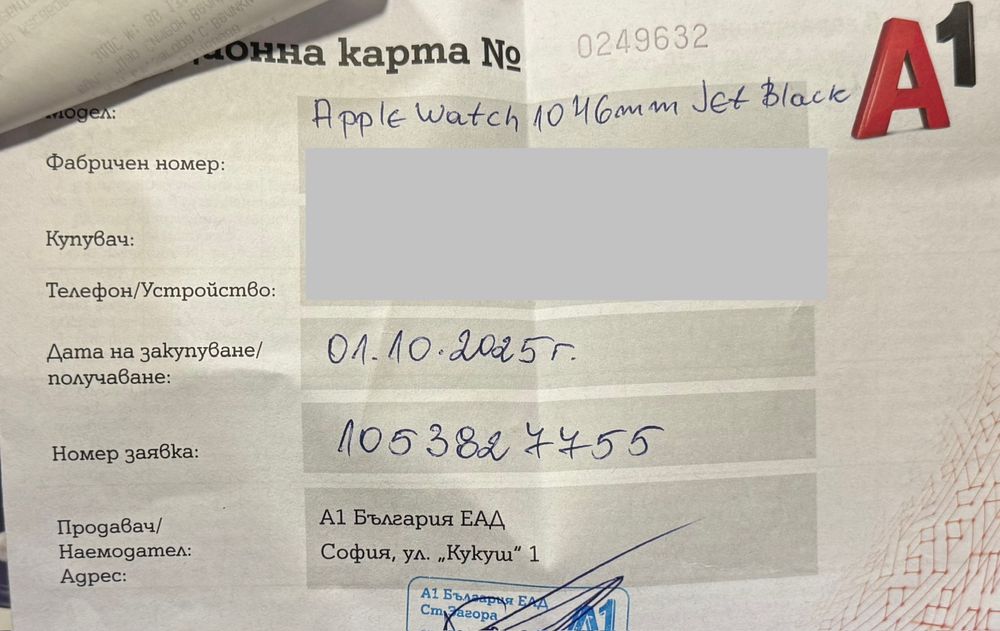 карта № 0249632
A1
Модел: Apple Watch 10 46mm Jet Black
Фабричен номер:
Купувач:
Телефон/Устройство:
Дата на закупуване/
получаване: 01.10.2025г.
Номер заявка: 1053827755
Продавач/
Наемодател:
Адрес:
А1 България ЕАД
София, ул. „Кукуш“ 1
А1 България ЕАД
Ст. Загора
A1